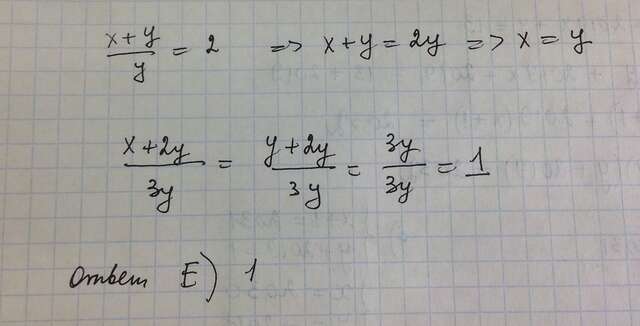 (x+y)/y = 2 => x+y = 2y => x = y
(x+2y)/3y = (y+2y)/3y = 3y/3y = 1
Ответ E) 1